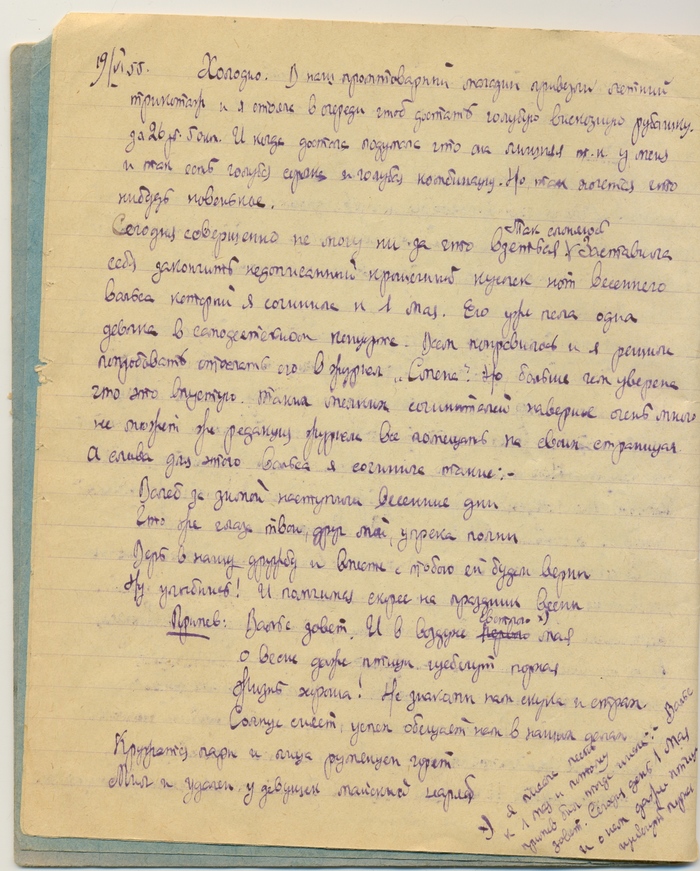 19/VI 55. Холодно. В наш промтоварний магазин привезли летний
трикотаж и я стояла в очереди чтоб достать голубую вискозную рубашку.
за 26 р. 50 коп. И когда достала подумала что она лишняя т.к. у меня
и так есть голубая сорочка и голубая комбинация. Но так хочется что
нибудь новенькое.
Так сложилось
Сегодня совершенно не могу ни за что взяться Заставила
себя закончить недописанний крошечний кусочек нот весеннего
вальса который я сочинила к 1 мая. Его уже пела одна
девочка в самодеятельном концерте. Всем понравилось и я решила
попробовать отослать его в журнал „Смена". Но больше чем уверена
что это впустую. таких мелких сочинителей наверное очень много
не может же редакция журнала все помещать на своих страницах
А слова для этого вальса я сочинила такие:-
Вслед за зимой наступили весенние дни
Что же глаза твои, друг мой, упрека полни
Верь в нашу дружбу и вместе с тобою ей будем верни
Ну улыбнись! И помчимся скорее на праздник весни
светлого х)
Припев: Вальс зовет, И в воздухе первого мая
о весне даже птицы щебечут порхая
Жизнь хороша! Не знакоми нам скука и страх.
Солнце сияет, успех обещает нам в наших делах
Кружатся пари и лица румянцем горят
Мил и удален у девушек майский наряд
х) я писала песню
к 1 мая и потому
припев бил тогда иной:- Вальс
зовет. Сегодня день 1 мая
и о нем даже птицы
щебечут порхая